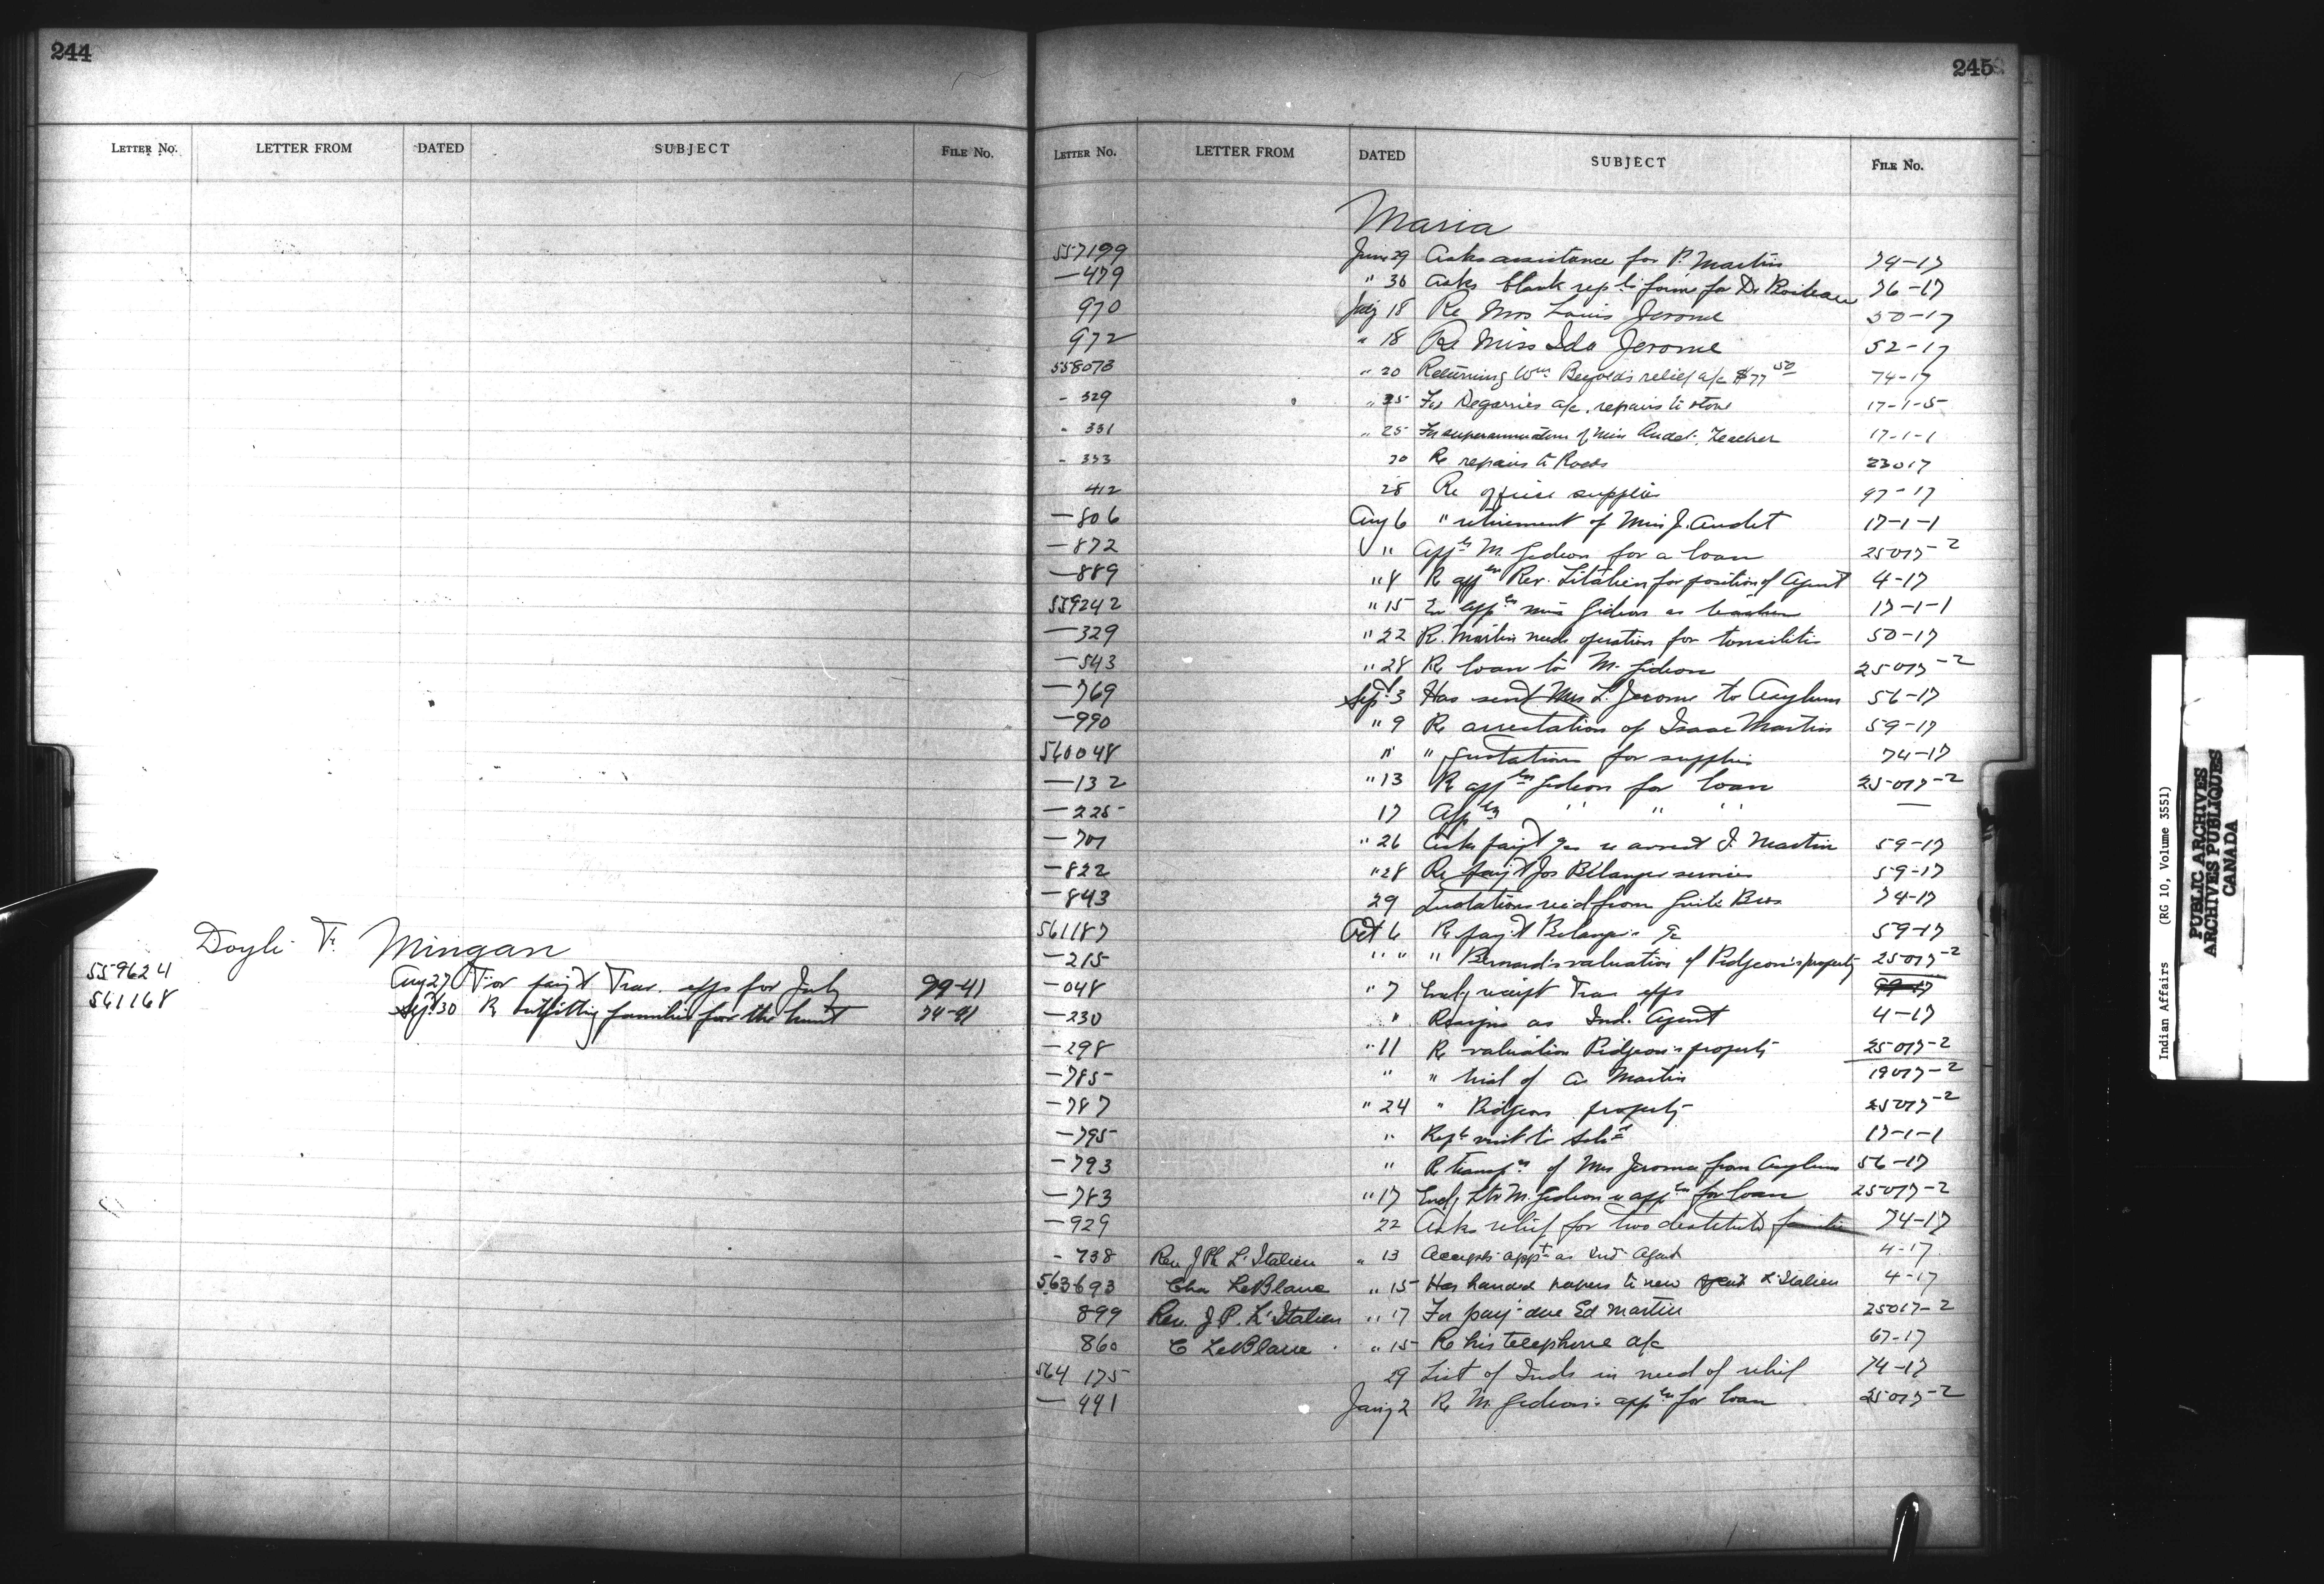 244
LETTER No. LETTER FROM DATED SUBJECT FILE No.
Doyle F. Mingan
559624 Aug 27 For pay't Trav. exps for July 99-41
561168 Sept 30 R outfitting families for the hunt 74-41
245
LETTER No. LETTER FROM DATED SUBJECT FILE No.
Maria
557199 June 29 Asks assistance for P. Martin 74-17
—479 " 30 Asks blank rep'ts forms for Dr 76-17
970 July 18 Re Mrs Louis Jerome 50-17
972 " 18 Re Miss Ida Jerome 52-17
558073 " 20 Returning Wm relief a/c $77 50 74-17
- 329 " 25 For a/c. repairs to stove 17-1-5
- 331 " 25 For superannuation of Miss Audet. Teacher 17-1-1
- 333 30 Re repairs to Roads 23017
412 28 Re office supplies 97-17
—806 Aug 6 " retirement of Miss J. Audet 17-1-1
—872 " App'n M. Gideon for a loan 25017-2
—889 " 8 R app'n Rev. L'Italien for position of Agent 4-17
559242 " 15 app'n Miss Gideon as teacher 17-1-1
—329 " 22 R. Martin needs operation for tonsilitis 50-17
—543 " 28 Re loan to M. Gideon 25017-2
—769 Sept 3 Has sent Mrs L. Jerome to Asylum 56-17
—990 " 9 R arrestation of Isaac Martin 59-17
560048 " " quotations for supplies 74-17
—132 " 13 R app'n Gideon for loan 25017-2
—225 17 App'n " " " —
—701 " 26 Asks pay't re arrest I. Martin 59-17
—822 " 28 Re pay't Jos Bélanger services 59-17
—843 29 Quotations rec'd from Guité Bros 74-17
561187 Oct 6 R pay't Belanger 59-17
—215 " " " Bernard's valuation of Pidgeon's property 25017-2
—048 " 7 Encl'g receipt Trav exps 99-17
—230 " Resigns as Ind. Agent 4-17
—298 " 11 R valuation Pidgeon's property 25017-2
—785 " " trial of A Martin 19017-2
—787 " 24 " Pidgeon property 25017-2
—795 " Rept visit to Sch'l 17-1-1
—793 " R transp'n of Mrs Jerome from Asylum 56-17
—783 " 17 Encl'g Ltr M. Gideon re app'n for loan 25017-2
—929 22 Asks relief for two destitute families 74-17
- 738 Rev J Ph L'Italien " 13 Accepts app't as Ind Agent 4-17
563693 Chas LeBlanc " 15 Has handed papers to new agent L'Italien 4-17
899 Rev. J P. L'Italien " 17 For pay't due Ed Martin 25017-2
860 C LeBlanc " 15 Re his telephone a/c 67-17
564 175 29 List of Inds in need of relief 74-17
— 441 Jan'y 2 R M. Gideon's app'n for loan 25017-2
Indian Affairs (RG 10, Volume 3551)
PUBLIC ARCHIVES
ARCHIVES PUBLIQUES
CANADA